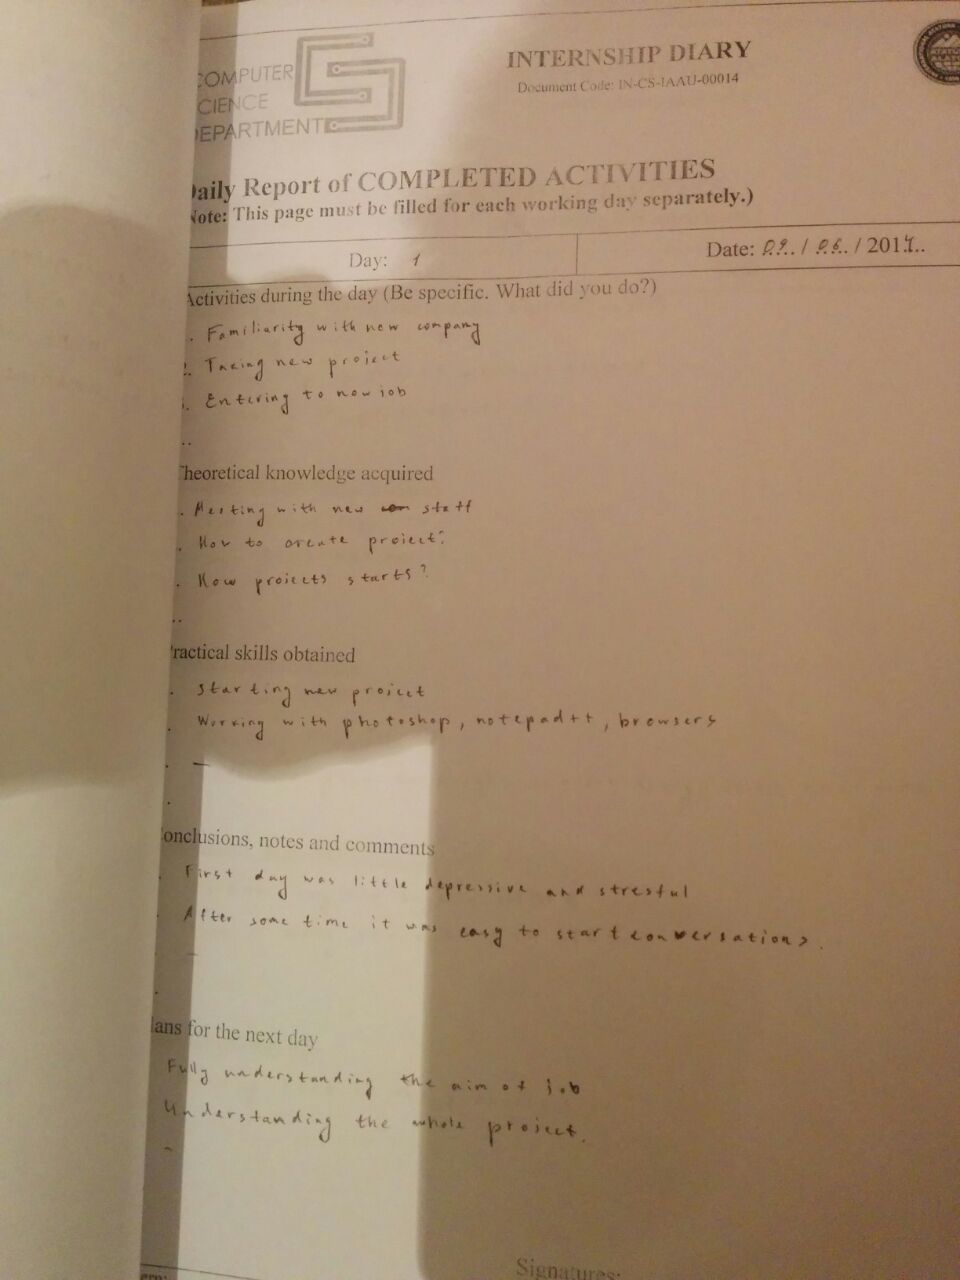 COMPUTER
SCIENCE
DEPARTMENT
INTERNSHIP DIARY
Document Code: IN-CS-IAAU-00014
Daily Report of COMPLETED ACTIVITIES
Note: This page must be filled for each working day separately.)
Day: 1
Date: 09.. / 06.. / 2017..
Activities during the day (Be specific. What did you do?)
. Familiarity with new company
2. Taking new project
. Entering to new job
..
Theoretical knowledge acquired
. Meeting with new staff
. How to create project?
. How projects starts?
..
Practical skills obtained
. Starting new project
. Working with photoshop, notepad++, browsers
. —
.
Conclusions, notes and comments
. First day was little depressive and stresful
. After some time it was easy to start conversations.
. —
.
lans for the next day
Fully understanding the aim of job
Understanding the whole project.
-
Signatures: